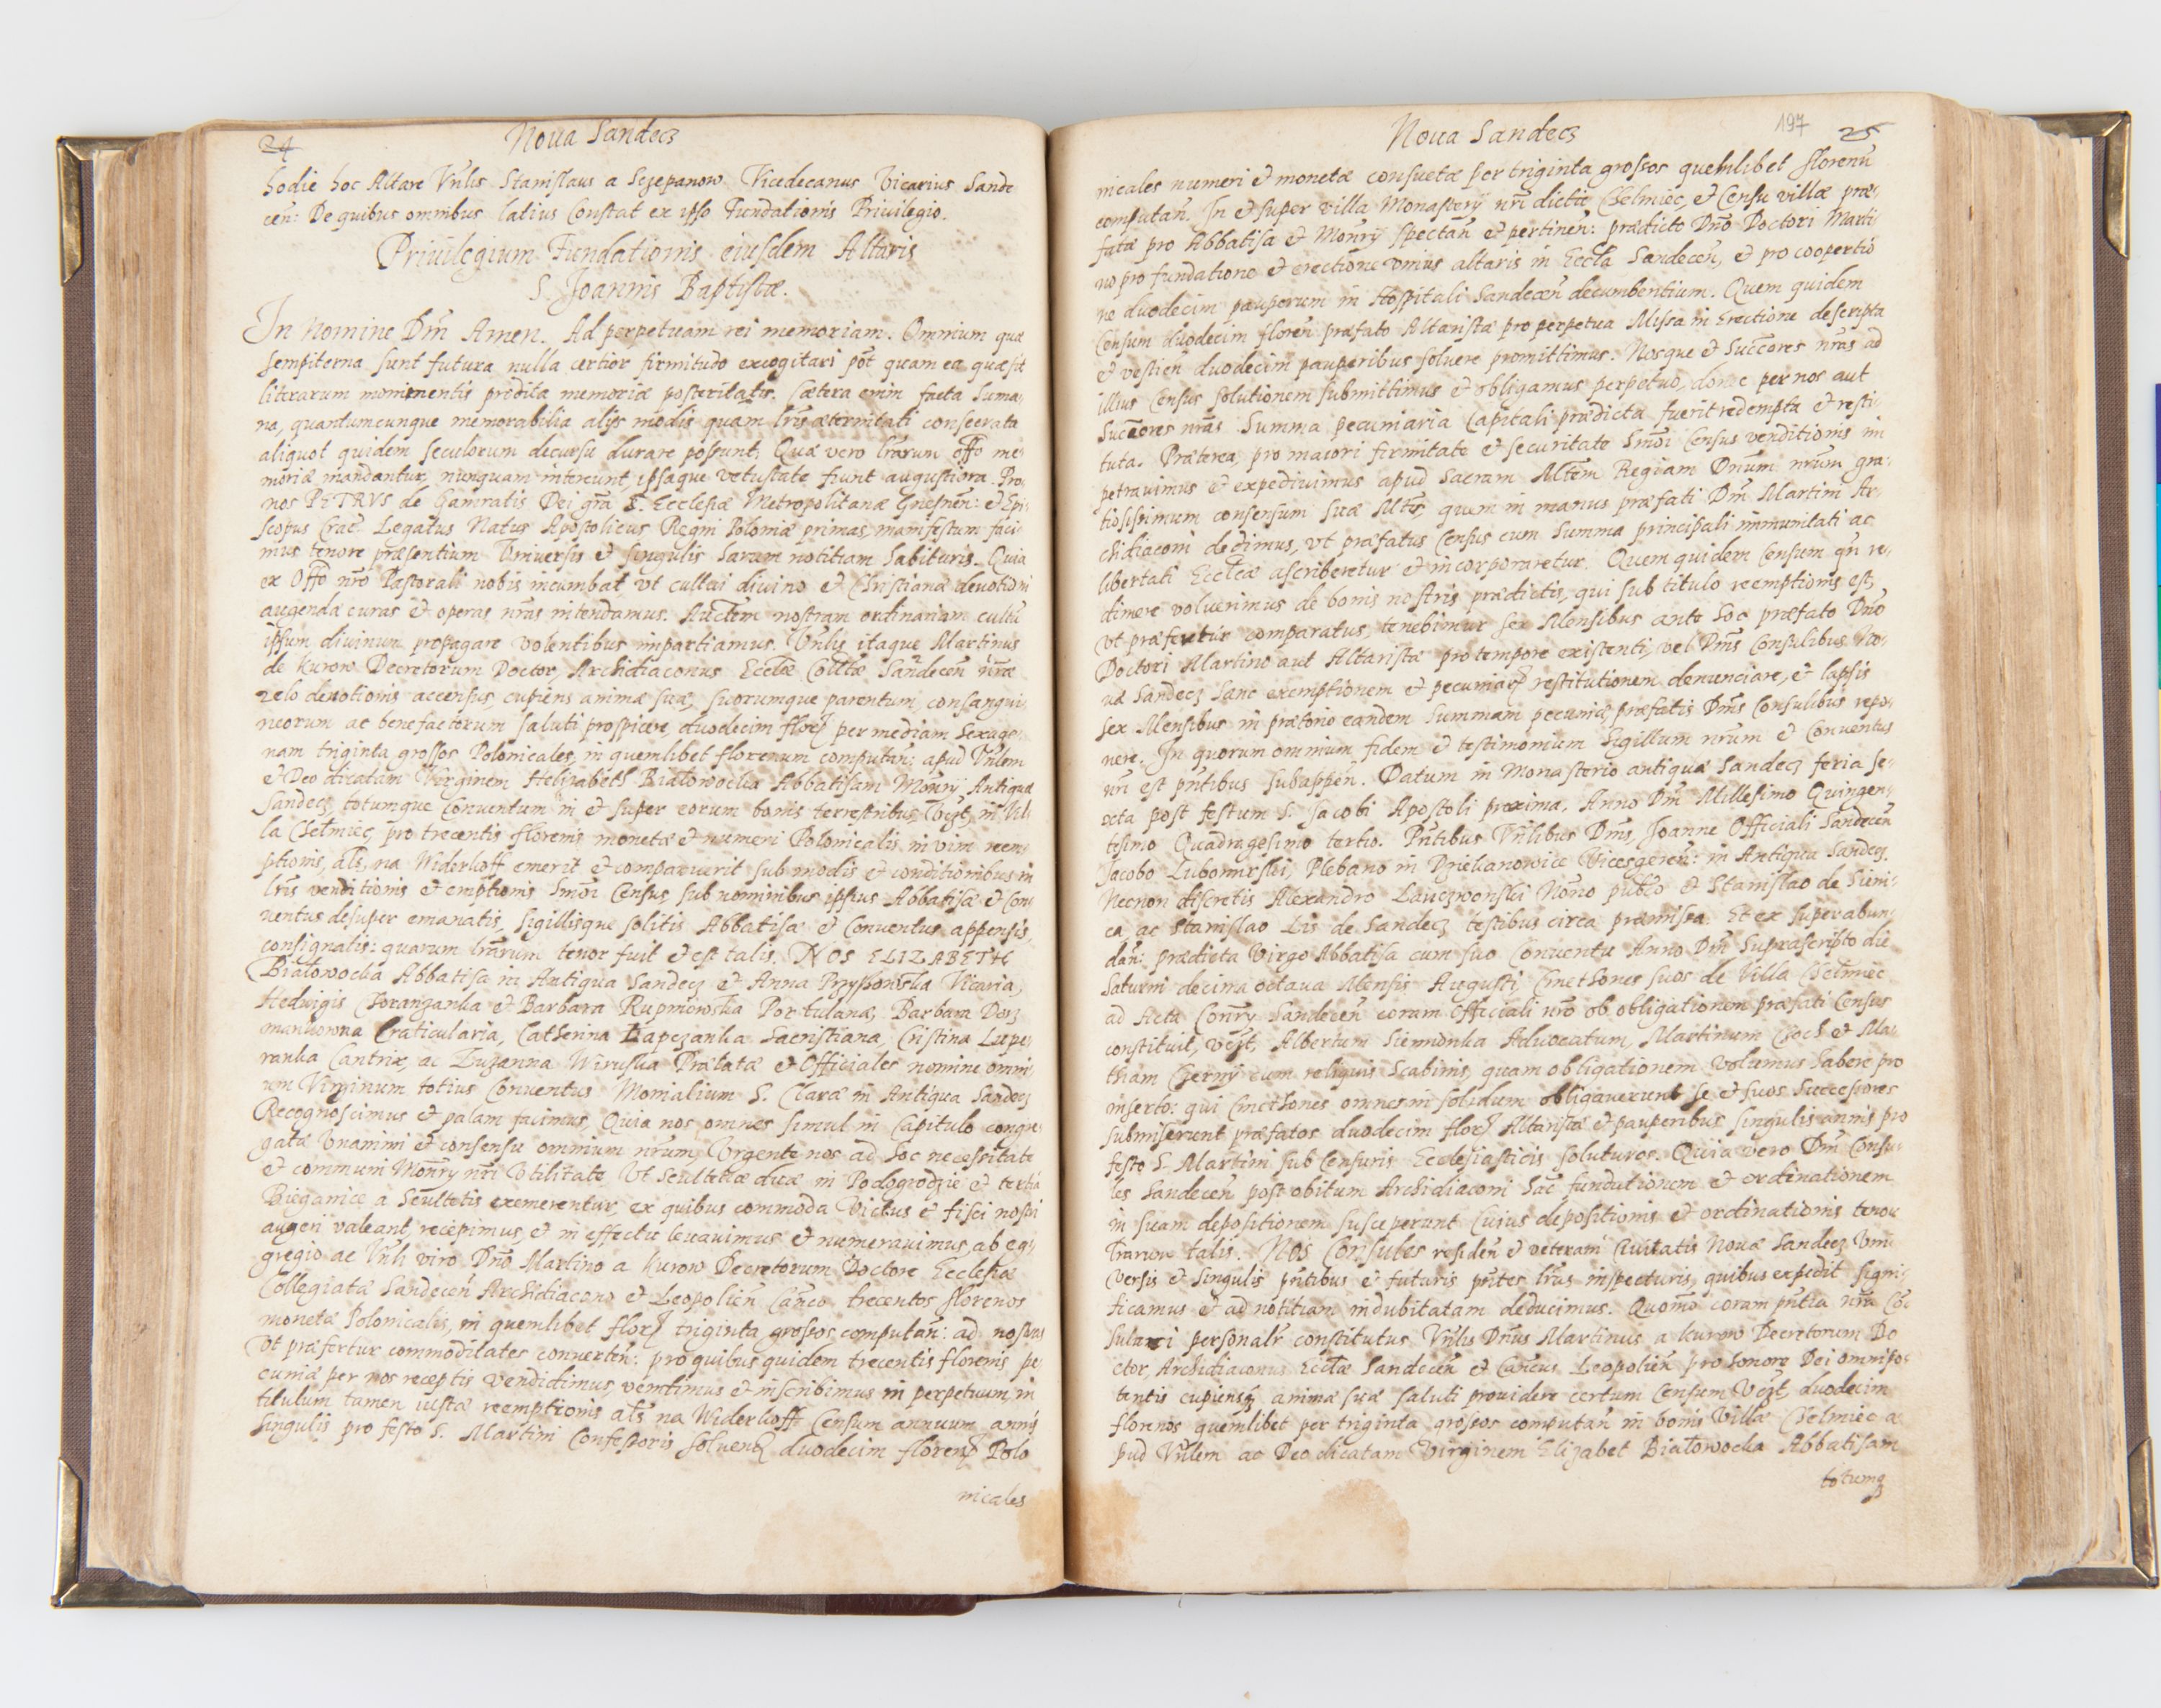 24
Noua Sandecz
hodie hoc Altare Vńlis Stanislaus a Sczepanow Vicedecanus Vicarius Sande
ceń: De quibus omnibus latius Constat ex ipso Fundationis Priuilegio.
Priuilegium Fundationis eiusdem Altaris
S. Joannis Baptistæ.
In Nomine Dm̃ Amen. Ad perpetuam rei memoriam. Omnium quæ
sempiterna sunt futura nulla certior firmitudo excogitari põt quam ea quæ sit
literarum monimentis prodita memoriæ posteritatis. Cætera enim facta huma-
na, quantumcunque memorabilia alijs modis quàm lr̃is æternitati consecrata
aliquot quidem seculorum decursu durare possunt; Quæ vero lr̃arum offo me-
moriæ mandantur, nunquam intereunt, ipsaque vetustate fiunt augustiora. Pro-
nos PETRVS de Gamratis Dei gr̃a S. Ecclesiæ Metropolitanæ Gnesneń: et Epi-
scopus Crac̃. Legatus Natus Apostolicus Regni Poloniæ primas, manifestum faci-
mus tenore præsentium Vniuersis et singulis harum notitiam habituris. Quia
ex Offo nr̃o Pastorali nobis incumbat vt cultui diuino et Christianæ deuotioni
augendæ curas et operas nr̃as intendamus. Auctem nostram ordinariam cultũ
ipsum diuinum propagare volentibus impartiamus. Vńlis itaque Martinus
de Kurow Decretorum Doctor, Archidiaconus Eccl̃æ Coll̃tæ Sandeceń nr̃æ
zelo deuotionis accensus, cupiens animæ suæ, suorumque parentum, consangui-
neorum ac benefactorum saluti prospicere, duodecim flor̃ per mediam sexage-
nam triginta grossos Polonicales, in quemlibet florenum computań: apud Vńlem
et Deo dicatam Virginem Helizabeth Białowocka Abbatisam Mon̄rij Antiquæ
Sandecz totumque conuentum in et super eorum bonis terrestribus, vczt, in Vil-
la Chełmiec, pro trecentis florenis monetæ et numeri Polonicalis in vim reem-
ptionis, al̃s, na Widerkoff emerit et comparauerit sub modis et conditionibus in
lr̃is venditionis et emptionis hmõi Census sub nominibus ipsius Abbatisæ et Con-
uentus desuper emanatis, sigillisque solitis Abbatisæ et Conuentus appensis
consignatis: quarum lr̃arum tenor fuit et est talis. NOS ELIZABETH
Białowocka Abbatisa in Antiqua Sandecz et Anna Przyszowska Vicaria,
Hedwigis Choranzanka et Barbara Rupniowska Portulanæ, Barbara Dersz
mankowna Craticularia, Catherina Łapczanka Sacristiana, Cristina Lupe-
ranka Cantrix, ac Zuzanna Wiruska Prælatæ et Officiales nomine omni-
um Virginum totius Conuentus Monialium S. Claræ in Antiqua Sandecz
Recognoscimus et palam facimus, Quia nos omnes simul in Capitulo congre-
gatæ Vnanimi et consensu omnium nr̃um, Vrgente nos ad hoc necessitate
et communi Mon̄rij nr̃i Vtilitate, Vt Scultetiæ duæ in Podogrodzie et tertia
Bieganice a Scultetis exemerentur, ex quibus commoda Victus et fisci nostri
augeri valeant, recepimus, et in effectu leuauimus et numerauimus, ab eg-
gregio ac Vńli viro Dño Martino a Kurow Decretorum Doctore Ecclesiæ
Collegiatæ Sandeceń Archidiacono et Leopolień Cańco trecentos florenos
monetæ Polonicalis, in quemlibet flor̃ triginta grossos computań: ad nostras
vt præfertur commoditates conuerteń: pro quibus quidem trecentis florenis pe-
cuniæ per nos receptis vendidimus, vendimus et inscribimus in perpetuum, in
titulum tamen iustæ reemptionis al̃s na Widerkoff Censum annuum annis
singulis pro festo S. Martini Confessoris soluend̃ duodecim floren̄ Polo
nicales
Noua Sandecz
197
25
nicales numeri et monetæ consuetæ per triginta grossos quemlibet florenũ
computań. In et super villa Monasterij nr̃i dicta Chełmiec, et Censu villæ præ-
fatæ pro Abbatisa et Mon̄rij spectań et pertineń: prædicto Dño Doctori Marti
no pro fundatione et erectione vnius altaris in Eccl̃a Sandeceń, et pro coopertio
ne duodecim pauperum in Hospitali Sandeceń decumbentium. Quem quidem
Censum duodecim floreń præfato Altaristæ pro perpetua Missa in Erectione descripta
et vestień duodecim pauperibus soluere promittimus. Nosque et Succ̃ores nr̃as ad
illius Census solutionem submittimus et obligamus perpetuo, donec per nos aut
Succ̃ores nr̃as Summa pecuniaria Capitali prædicta fuerit redempta et resti-
tuta. Præterea, pro maiori firmitate et securitate hmõi Census venditionis im
petrauimus et expediuimus apud Sacram Mtẽm Regiam Dnum nr̃um gra-
tiosissimum consensum suæ Mtis, quem in manus præfati Dm̃ Martini Ar-
chidiaconi dedimus, vt præfatus Census cum Summa principali immunitati ac
libertati Eccl̃icæ ascriberetur et incorporaretur. Quem quidem Censum qñ re-
dimere voluerimus de bonis nostris prædictis, qui sub titulo reemptionis est,
vt præfertur comparatus, tenebimur sex Mensibus ante hoc præfato Dño
Doctori Martino aut Altaristæ pro tempore existenti, vel Dm̃s Consulibus No-
uæ Sandecz hanc exemptionem et pecuniar̃ restitutionem denunciare, et lapsis
sex Mensibus in prætorio eandem Summam pecuniæ, præfatis Dm̃s Consulibus repo-
nere. In quorum omnium fidem et testimonium Sigillum nr̃um et Conuentus
nr̃i est pñtibus subappeń. Datum in Monasterio antiquæ Sandecz feria se-
xta post festum S. Jacobi Apostoli proxima, Anno Dm̃ Millesimo Quingen-
tesimo Quadragesimo tertio. Pñtibus Vńlibus Dm̃s, Joanne Officiali Sandeceń
Jacobo Lubomirski, Plebano in Dziekanowice Vicesgereń: in Antiqua Sandecz.
Necnon discretis Alexandro Ławczwonski Nõrio publ̃co et Stanislao de Sieni-
ca, ac Stanislao Lis de Sandecz testibus circa præmissa. Et ex superabun-
dań: prædicta Virgo Abbatisa cum suo Conuentu Anno Dm̃ Suprascripto die
Saturni decima octaua Mensis Augusti, Cmethones suos de Villa Chełmiec
ad Acta Con̄rij Sandeceń coram Officiali nr̃o ob obligationem præfati Census
constituit, vczt, Albertum Siemionka Aduocatum, Martinum Choch et Ma-
thiam Cherny cum reliquis Scabinis, quam obligationem volumus habere pro
inserto: qui Cmethones omnes in solidum obligauerunt se et suos Successores
submiserunt præfatos duodecim flor̃ Altaristæ et pauperibus singulis annis pro
festo S. Martini sub Censuris Ecclesiasticis soluturos. Quia vero Dm̃ Consu-
les Sandeceń post obitum Archidiaconi hac̃ fundationem et ordinationem
in suam depositionem susceperunt Cuius depositionis et ordinationis tenor
lr̃arum talis. Nos Consules resideń et veterani Ciuitatis Nouæ Sandecz Vni-
versis et singulis pñtibus et futuris pñtes lr̃as inspecturis, quibus expedit signi-
ficamus et ad notitiam indubitatam deducimus. Quomõ coram pñtia nr̃a Cõ-
sulari personalr̃ constitutus Vńlis Dñus Martinus a Kurow Decretorum Do
ctor, Archidiaconus Eccl̃æ Sandeceń et Cańcus Leopolień pro honore Dei omnipo-
tentis cupiensq̃ animæ suæ saluti prouidere certum Censum Vczt, duodecim
florenos quemlibet per triginta grossos computań in bonis Villæ Chełmiec a
pud Vńlem ac Deo dicatam Virginem Elizabet Białowocka Abbatisam
totumq̃